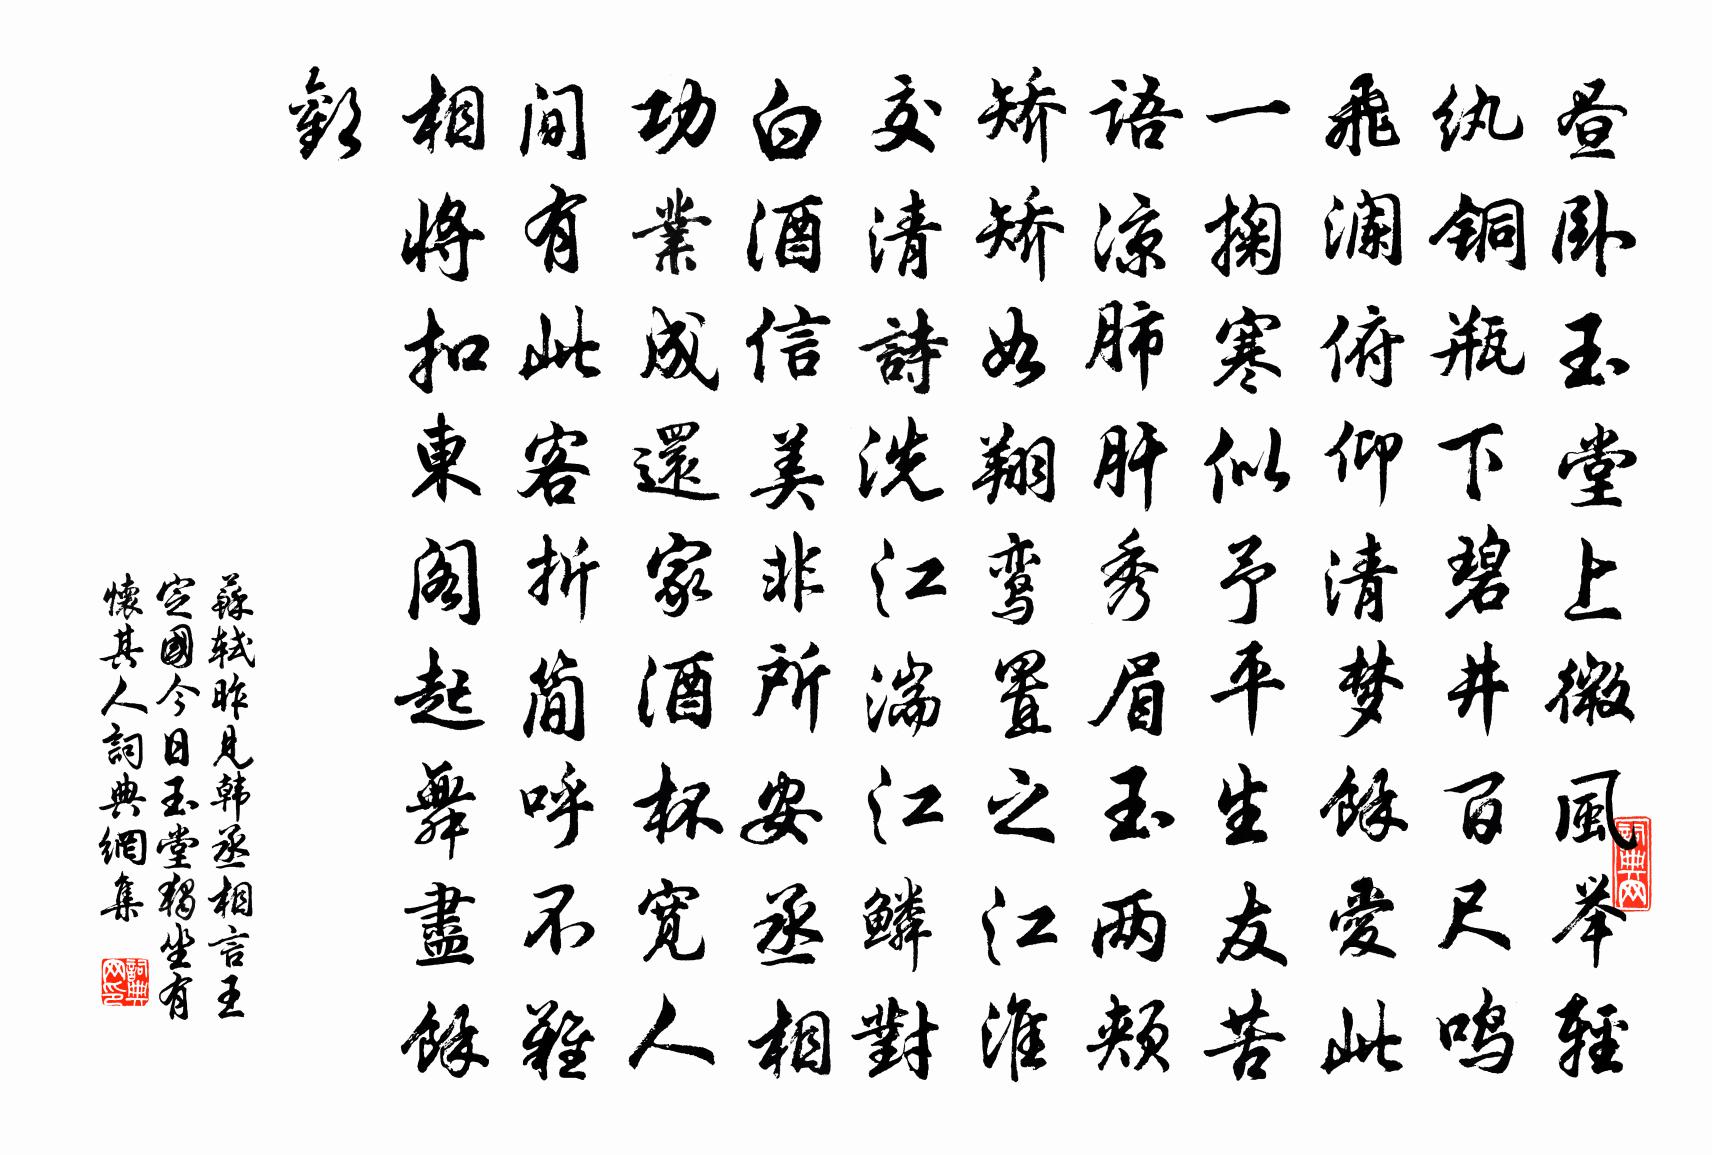 昼卧玉堂上微風举輕
纨铜瓶下碧井百尺鸣
飛澜俯仰清梦餘愛此
一掬寒似予平生友苦
語凉肺肝秀眉玉两颊
矫矫如翔鸾置之江淮
交清詩洗江湍江鱗對
白酒信美非所安丞相
功業成還家酒杯宽人
间有此客折简呼不難
相将扣東阁起舞盡餘
歡
蘇轼昨見韩丞相言王
定國今日玉堂独坐有
懷其人詞典網集
詞典网
詞典网印